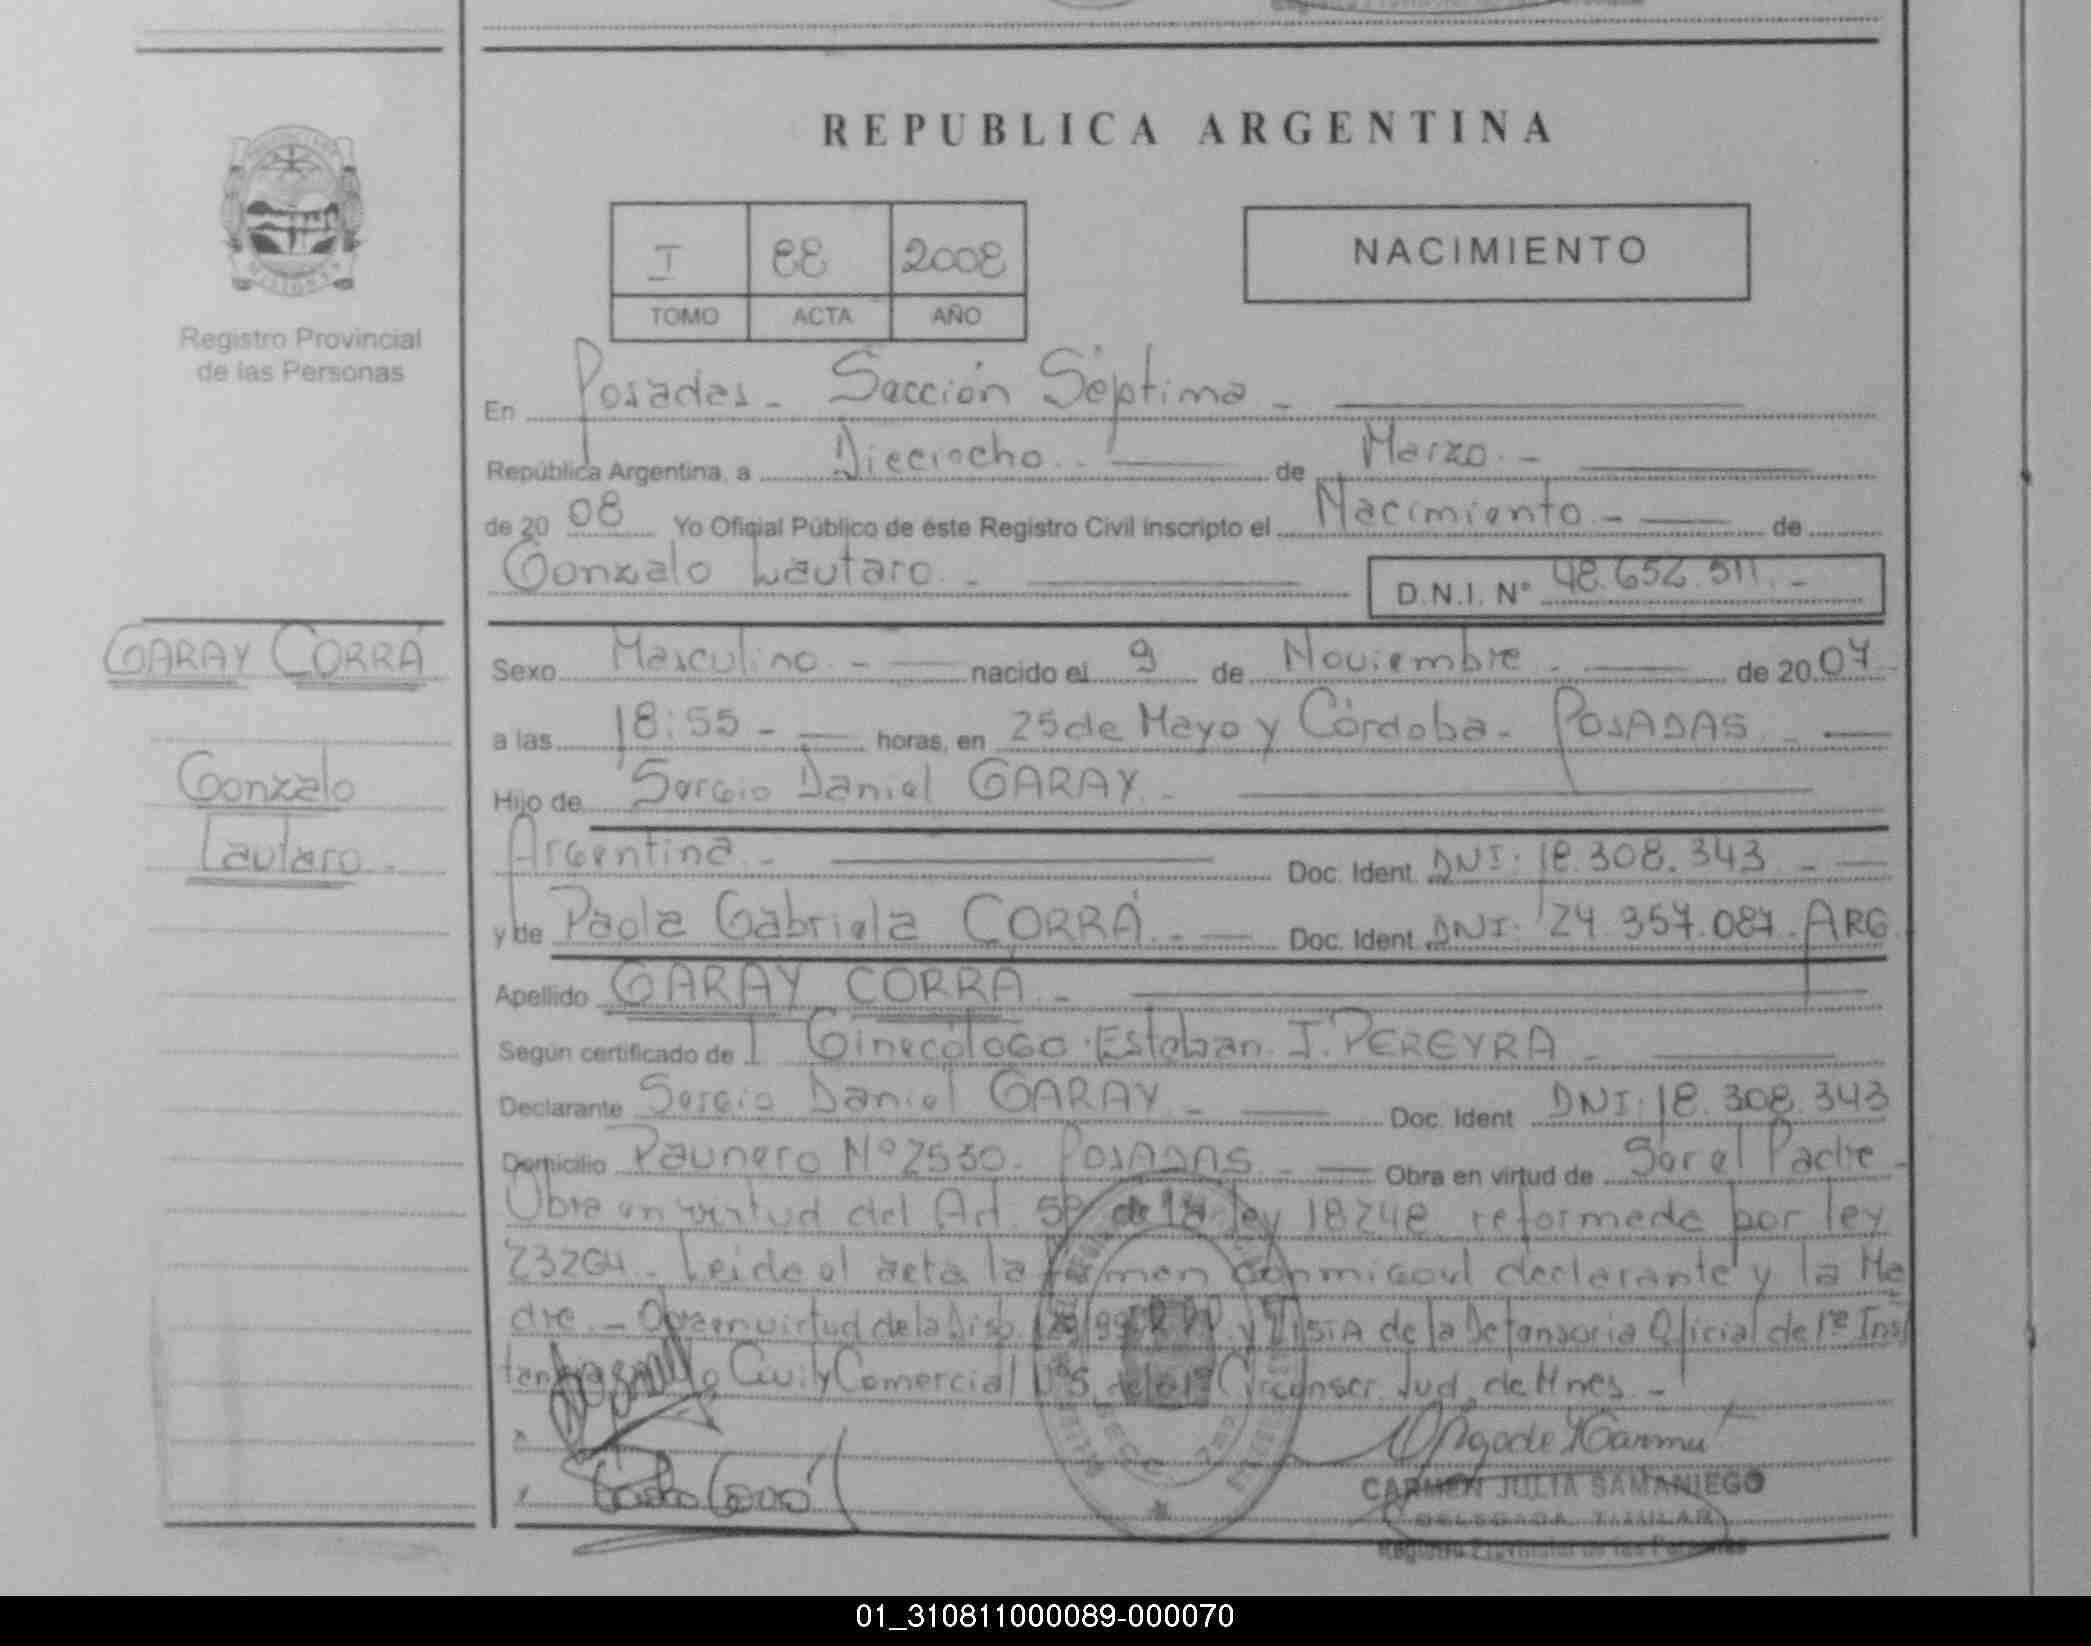 REPUBLICA ARGENTINA
I 88 2008
TOMO ACTA AÑO
NACIMIENTO
Registro Provincial
de las Personas
En Posadas - Sección Séptima -
República Argentina, a Dieciocho - de Marzo. -
de 20 08 Yo Oficial Público de éste Registro Civil inscripto el Nacimiento - de
Gonzalo Lautaro. - D.N.I. N° 48.652.511. -
GARAY CORRÁ
Gonzalo
Lautaro. -
Sexo Masculino. - nacido el 9 de Noviembre. - de 20 07
a las 18:55 - horas, en 25 de Mayo y Córdoba - POSADAS. -
Hijo de Sergio Daniel GARAY. -
Argentina. - Doc. Ident. DNI: 18.308.343. -
y de Paola Gabriela CORRÁ. - Doc. Ident. DNI: 24.357.087. ARG
Apellido GARAY CORRÁ. -
Según certificado de Ginecólogo Esteban J. PEREYRA -
Declarante Sergio Daniel GARAY - Doc. Ident DNI: 18.308.343
Domicilio Paunero Nº 2530. POSADAS. - Obra en virtud de Ser el Padre -
Obra en virtud del Art. 5º de la ley 18248 reformada por ley
23264. - Leída el acta la firman conmigo el declarante y la Ma
dre. - Obra en virtud de la Disp. y VISTA de la Defensoría Oficial de 1ra Ins
Civil y Comercial Nº 5 de la 1ra Circunscr. Jud. de Mnes. -
x
x
CARMEN JULIA SAMANIEGO
DELEGADA TITULAR
Registro Provincial de las Personas
01_310811000089-000070